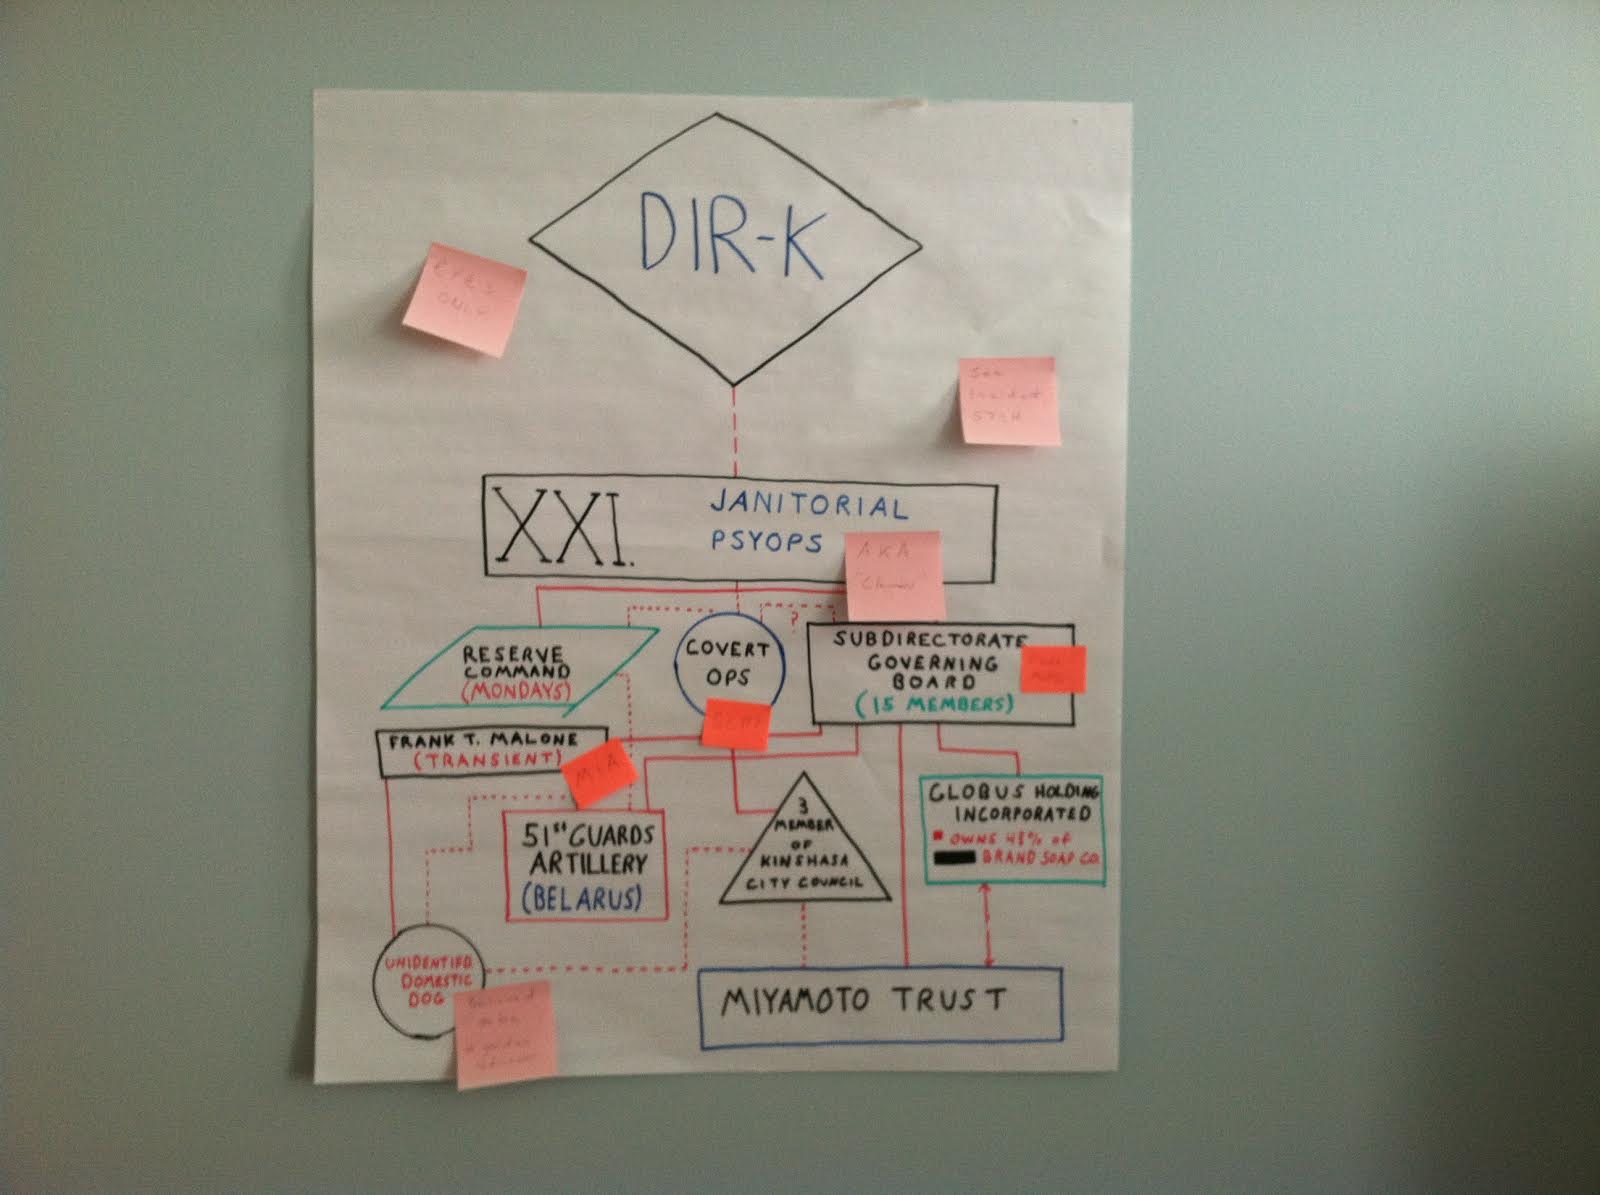 DIR-K
EYES
ONLY
See
Incident
XXI.
JANITORIAL
PSYOPS
AKA
?
RESERVE
COMMAND
(MONDAYS)
COVERT
OPS
SUBDIRECTORATE
GOVERNING
BOARD
(15 MEMBERS)
FRANK T. MALONE
(TRANSIENT)
MIA
51ST GUARDS
ARTILLERY
(BELARUS)
3
MEMBER
OF
KINSHASA
CITY COUNCIL
GLOBUS HOLDING
INCORPORATED
OWNS 48% OF
BRAND SOAP CO.
UNIDENTIFD
DOMESTIC
DOG
MIYAMOTO TRUST